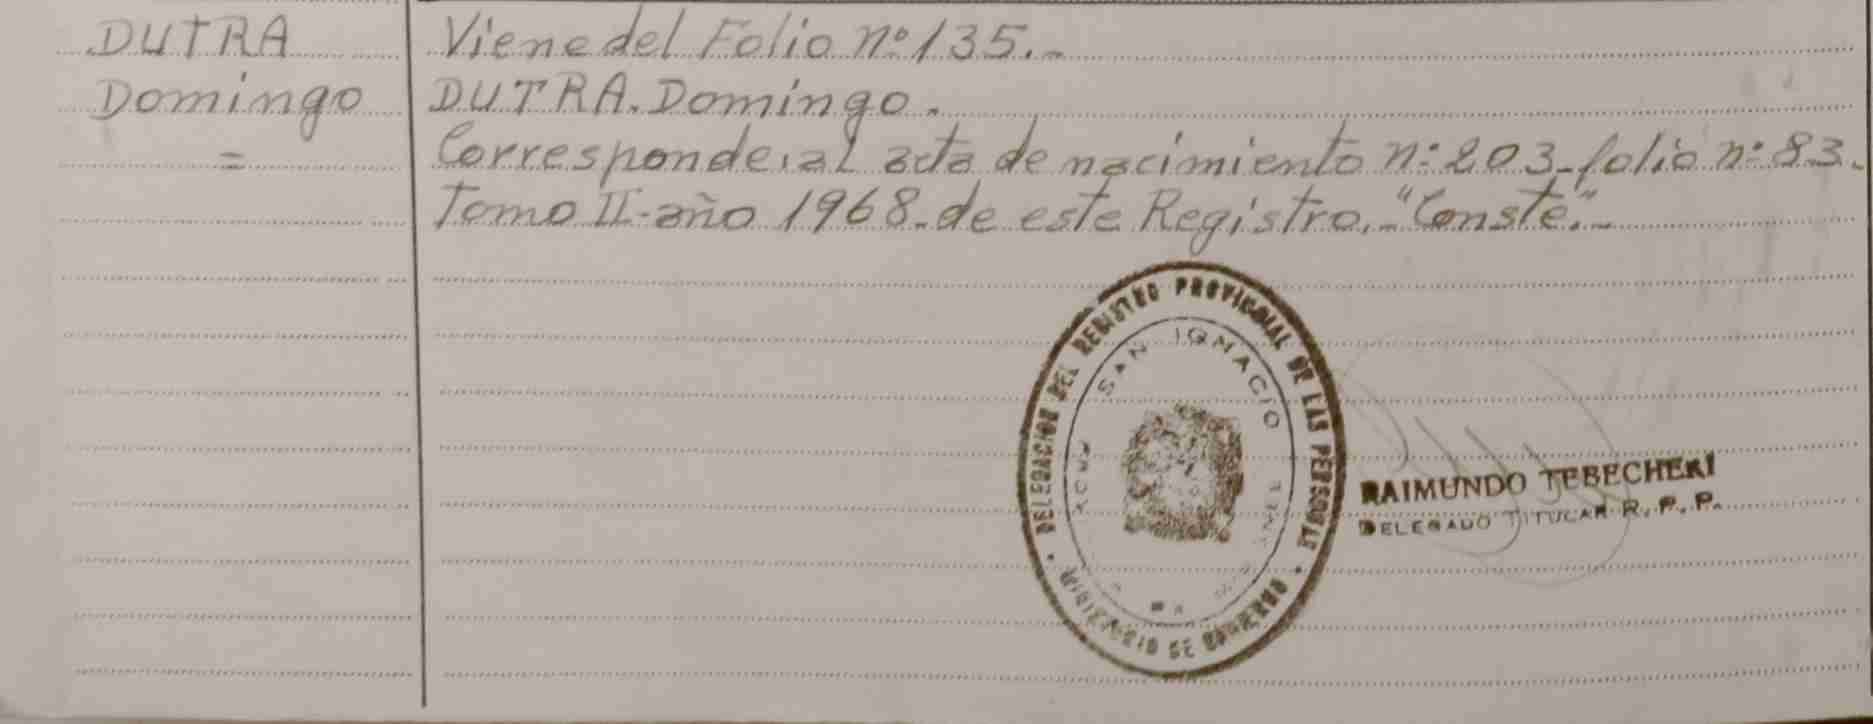 DUTRA
Domingo
=
Viene del Folio nº 135.-
DUTRA. Domingo.
Corresponde al acta de nacimiento nº 203-folio nº 83.
Tomo II-año 1968-de este Registro.-"Conste".-
DELEGACION DEL REGISTRO PROVINCIAL DE LAS PERSONAS
SAN IGNACIO
MINISTERIO DE GOBIERNO
RAIMUNDO TEBECHERI
DELEGADO TITULAR R. P. P.